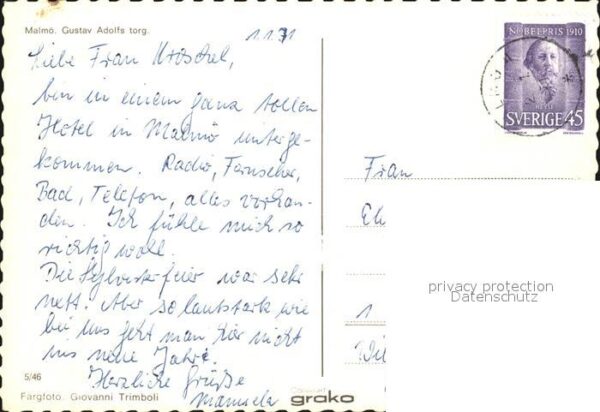 Malmö. Gustav Adolfs torg.
1.1.71
Liebe Frau Kroschel,
bin in einem ganz tollen
Hotel in Malmö unterge-
kommen. Radio, Fernseher,
Bad, Telefon, alles vorhan-
den. Ich fühle mich so
richtig wohl.
Die Sylvesterfeier war sehr
nett. Aber so lautstark wie
bei uns geht man hier nicht
ins neue Jahr.
Herzliche Grüße
Manuela
5/46
Färgfoto. Giovanni Trimboli
grako
NOBELPRIS 1910
HEYSE
SVERIGE 45
Frau
privacy protection
Datenschutz
1